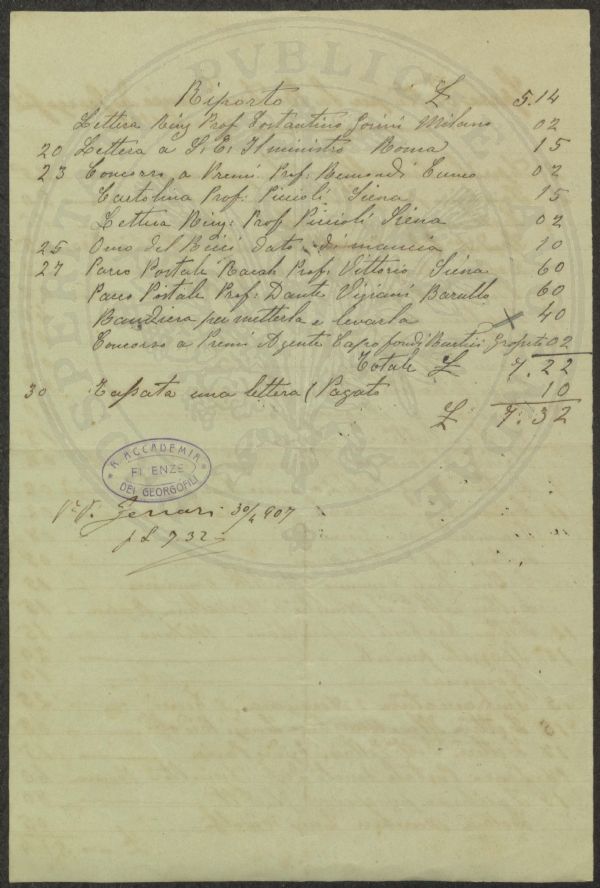 Riporto £ 5.14
Lettera Ring Prof Costantino Gorini Milano 02
20 Lettera a S. E. Il ministro Roma 15
23 Concorso a Premi Prof: Remondi Cuneo 02
Cartolina Prof: Piccioli Siena 15
Lettera Ring: Prof Piccioli Siena 02
25 dato di mancia 10
27 Pacco Postale Racah Prof: Vittorio Siena 60
Pacco Postale Prof: Dante Vigiani 60
Bandiera per metterla e levarla 40
Concorso a Premi Agente 02
Totale £ 7.22
30 Tassata una lettera (Pagato 10
£ 7.32
R. ACCADEMIA
FIRENZE
DEI GEORGOFILI
30/4 907
£ 7.32
PVBLICA